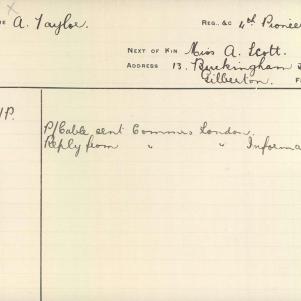 E A. Taylor REG. &C 4th Pioneer
NEXT OF KIN Miss A. Scott.
ADDRESS 13. Buckingham S
Gilberton.
/P.
P/Cable sent Commrs London.
Reply from " " Informa